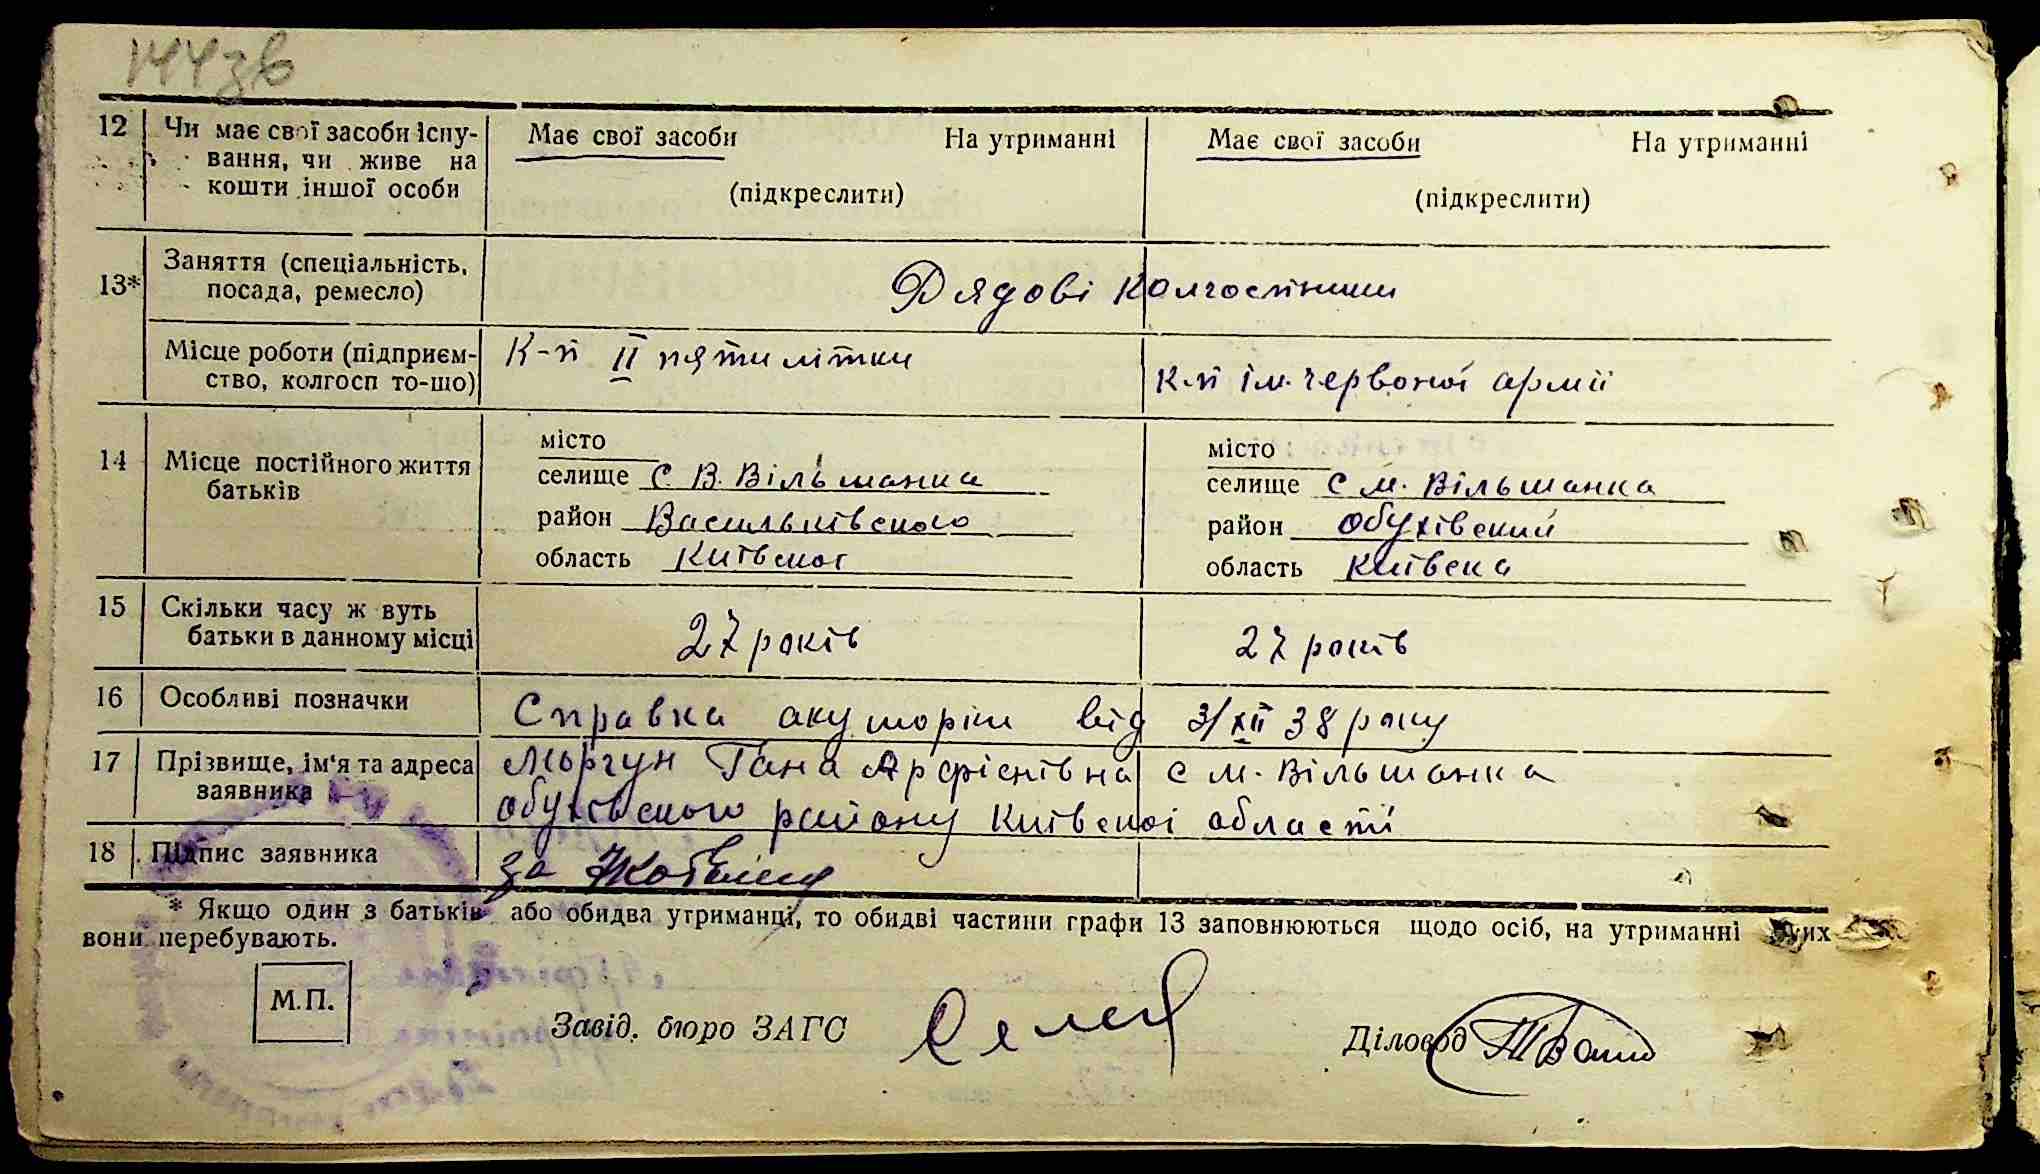 144зв
12 Чи має свої засоби існу- Має свої засоби На утриманні Має свої засоби На утриманні
вання, чи живе на
кошти іншої особи (підкреслити) (підкреслити)
13* Заняття (спеціальність,
посада, ремесло) Рядові колгоспники
Місце роботи (підприєм- К-п ІІ пятилітки
ство, колгосп то-що) к-п ім. червоної армії
14 Місце постійного життя
батьків
місто
селище с. В. Вільшанка
район Васильківского
область Київскої
місто
селище с м. Вільшанка
район обухівский
область київска
15 Скільки часу ж вуть
батьки в данному місці 27 років 27 років
16 Особливі позначки Справка акушорки від 3/ХІІ 38 року
17 Прізвище, ім'я та адреса Моргун Гана Арфієнтівна с м. Вільшанка
заявника обухівского району Київскої області
18 Підпис заявника за
* Якщо один з батьків або обидва утриманці, то обидві частини графи 13 заповнюються щодо осіб, на утриманні яких
вони перебувають.
М.П.
Завід. бюро ЗАГС
Діловод